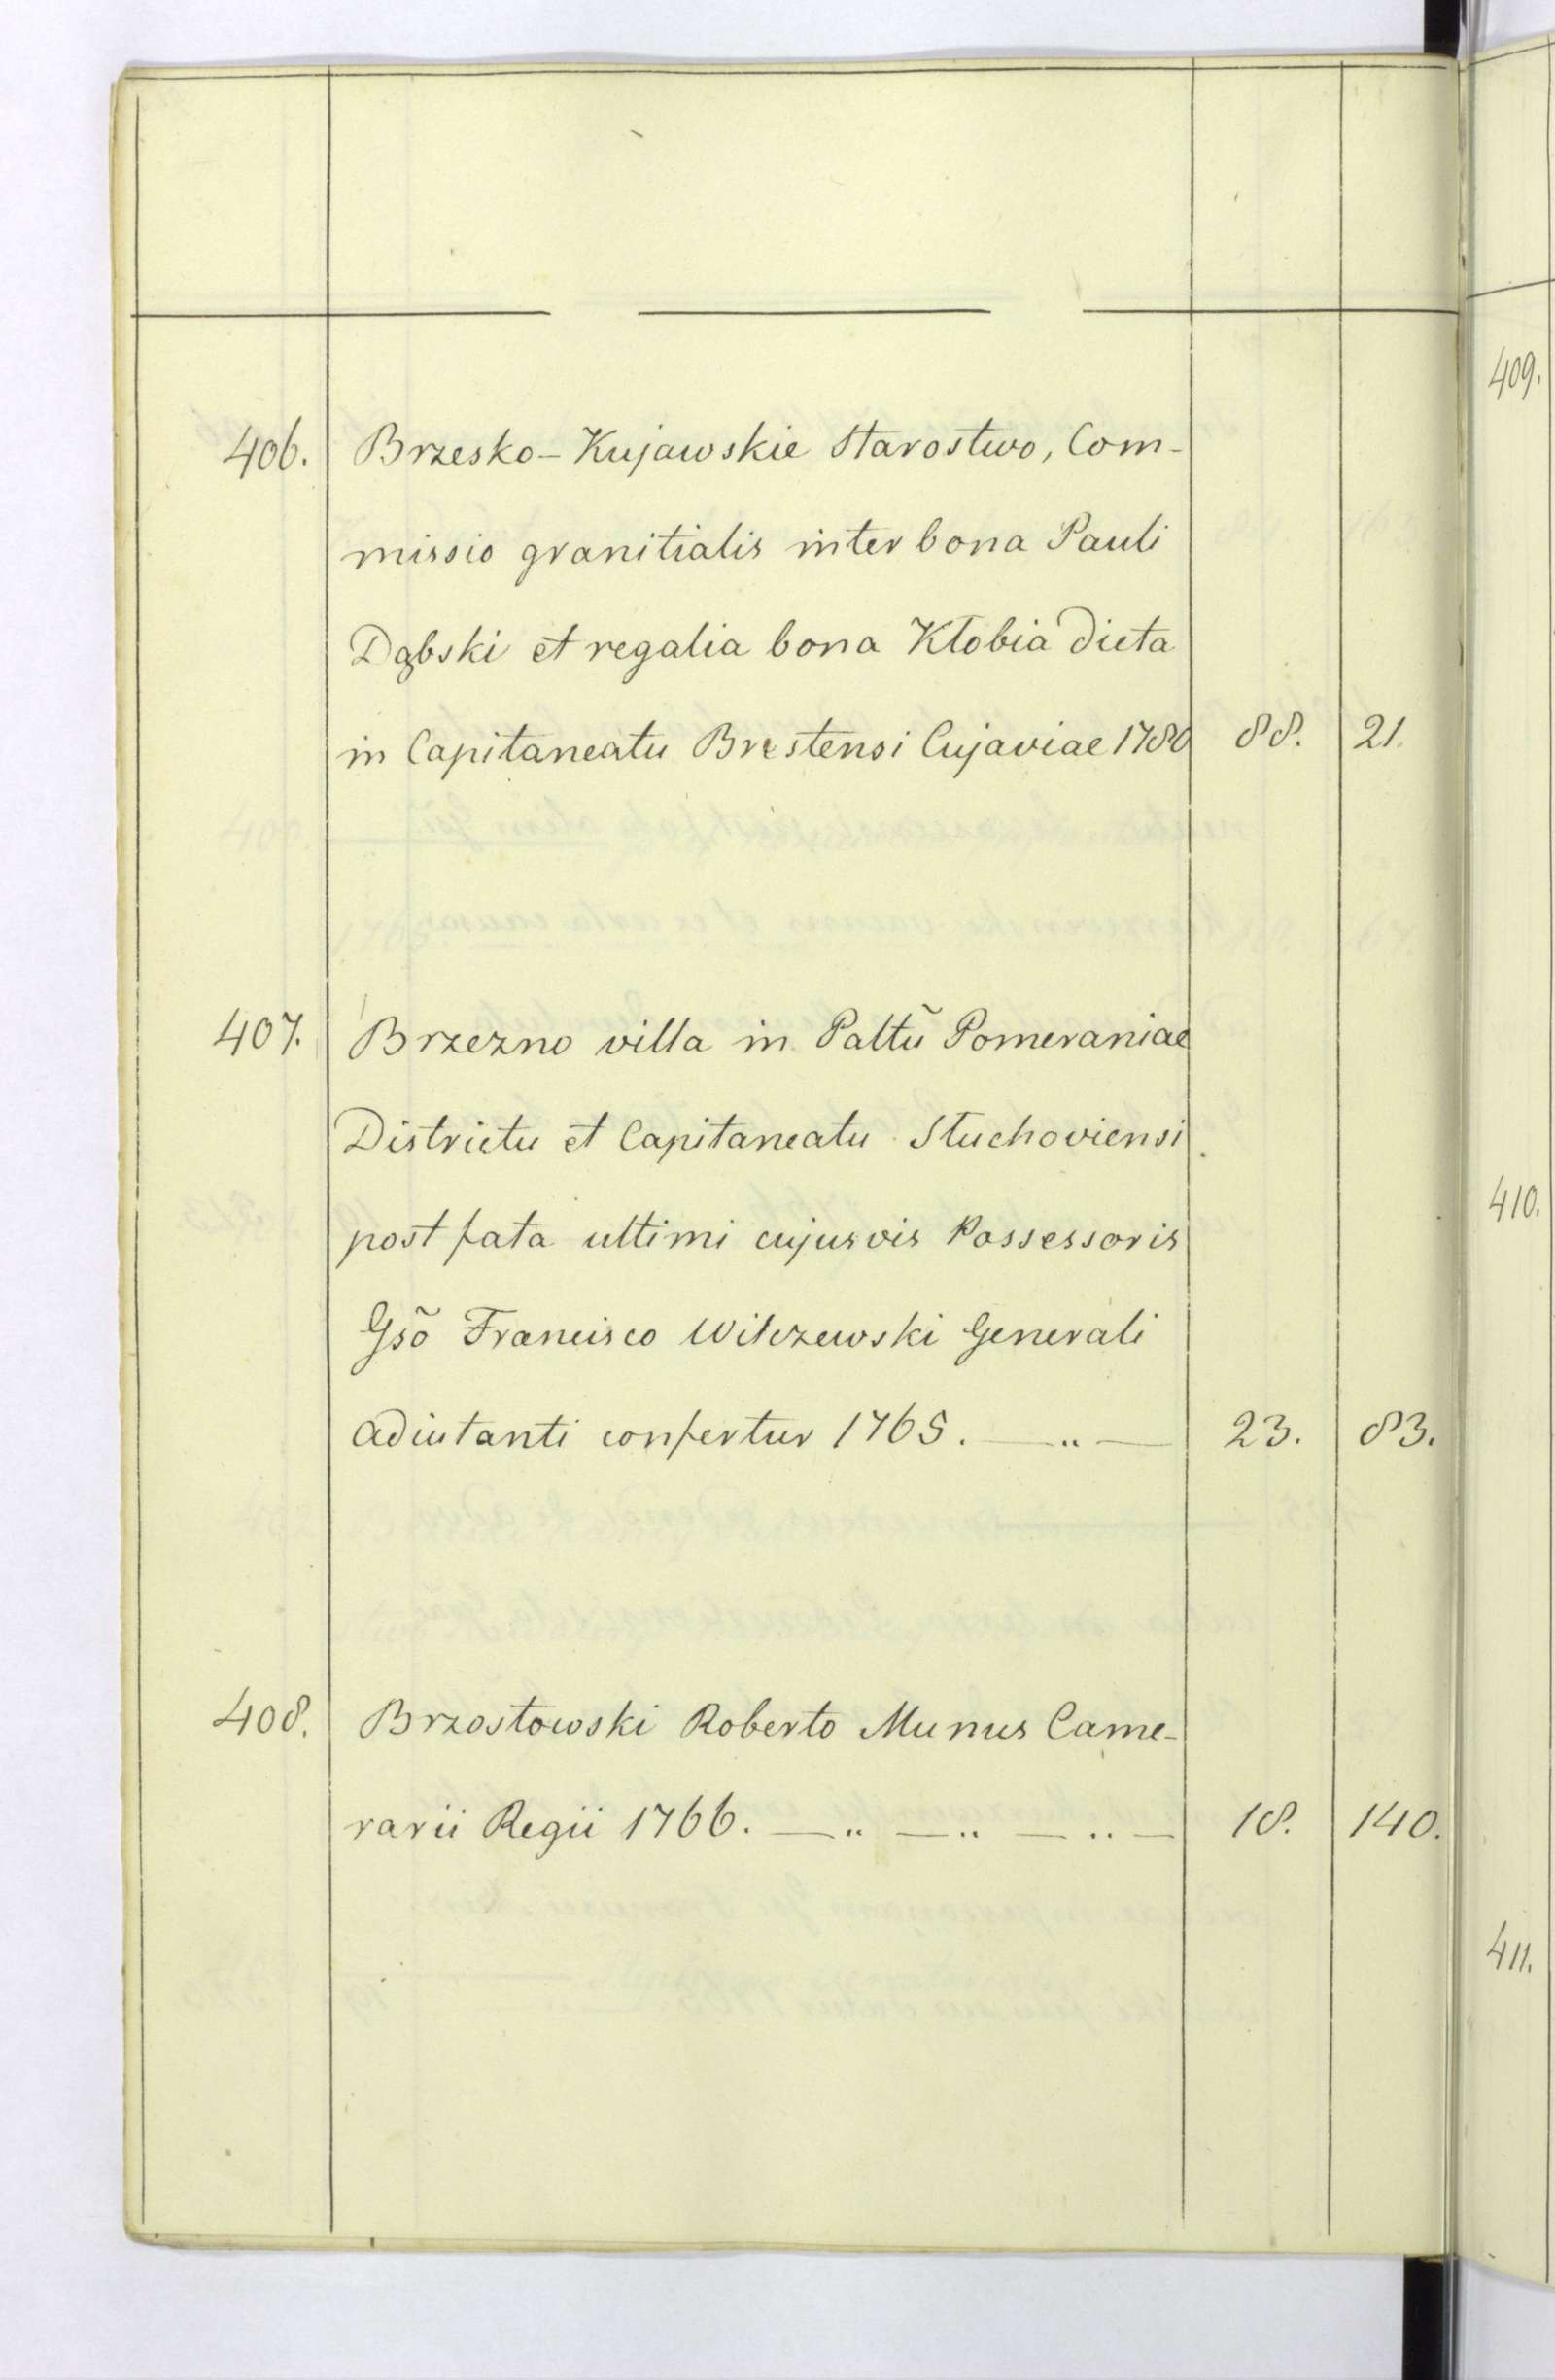 406. Brzesko-Kujawskie Starostwo, Com-
missio granitialis inter bona Pauli
Dąbski et regalia bona Kłobia dicta
in Capitaneatu Brestensi Cujaviae 1780 88. 21.
407. Brzezno villa in Paltũ Pomeraniae
Districtu et Capitaneatu Stuchoviensi
post fata ultimi cujusvis Possessoris
Gsõ Francisco Wilczewski Generali
Adiutanti confertur 1765. — „ — 23. 83.
408. Brzostowski Roberto Munus Came-
rarii Regii 1766. — „ — „ — „ — 18. 140.
409.
410.
411.